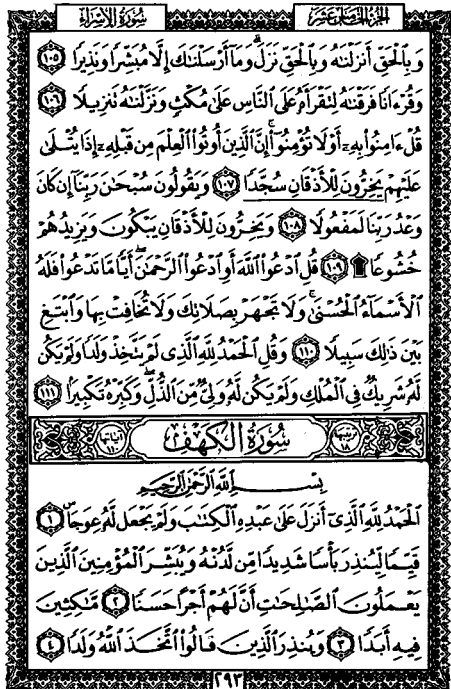 الجزء الخامس عشر
سورة الإسراء
وَبِٱلْحَقِّ أَنزَلْنَٰهُ وَبِٱلْحَقِّ نَزَلَ ۗ وَمَآ أَرْسَلْنَٰكَ إِلَّا مُبَشِّرًا وَنَذِيرًا ١٠٥
وَقُرْءَانًا فَرَقْنَٰهُ لِتَقْرَأَهُۥ عَلَى ٱلنَّاسِ عَلَىٰ مُكْثٍ وَنَزَّلْنَٰهُ تَنزِيلًا ١٠٦
قُلْ ءَامِنُوا۟ بِهِۦٓ أَوْ لَا تُؤْمِنُوٓا۟ ۚ إِنَّ ٱلَّذِينَ أُوتُوا۟ ٱلْعِلْمَ مِن قَبْلِهِۦٓ إِذَا يُتْلَىٰ
عَلَيْهِمْ يَخِرُّونَ لِلْأَذْقَانِ سُجَّدًا ١٠٧ وَيَقُولُونَ سُبْحَٰنَ رَبِّنَآ إِن كَانَ
وَعْدُ رَبِّنَا لَمَفْعُولًا ١٠٨ وَيَخِرُّونَ لِلْأَذْقَانِ يَبْكُونَ وَيَزِيدُهُمْ
خُشُوعًا ۩ ١٠٩ قُلِ ٱدْعُوا۟ ٱللَّهَ أَوِ ٱدْعُوا۟ ٱلرَّحْمَٰنَ ۖ أَيًّا مَّا تَدْعُوا۟ فَلَهُ
ٱلْأَسْمَآءُ ٱلْحُسْنَىٰ ۚ وَلَا تَجْهَرْ بِصَلَاتِكَ وَلَا تُخَافِتْ بِهَا وَٱبْتَغِ
بَيْنَ ذَٰلِكَ سَبِيلًا ١١٠ وَقُلِ ٱلْحَمْدُ لِلَّهِ ٱلَّذِى لَمْ يَتَّخِذْ وَلَدًا وَلَمْ يَكُن
لَّهُۥ شَرِيكٌ فِى ٱلْمُلْكِ وَلَمْ يَكُن لَّهُۥ وَلِىٌّ مِّنَ ٱلذُّلِّ ۖ وَكَبِّرْهُ تَكْبِيرًۢا ١١١
ترتيبها ١٨ سورة الكهف آياتها ١١٠
بِسْمِ ٱللَّهِ ٱلرَّحْمَٰنِ ٱلرَّحِيمِ
ٱلْحَمْدُ لِلَّهِ ٱلَّذِىٓ أَنزَلَ عَلَىٰ عَبْدِهِ ٱلْكِتَٰبَ وَلَمْ يَجْعَل لَّهُۥ عِوَجَا ۜ ١
قَيِّمًا لِّيُنذِرَ بَأْسًا شَدِيدًا مِّن لَّدُنْهُ وَيُبَشِّرَ ٱلْمُؤْمِنِينَ ٱلَّذِينَ
يَعْمَلُونَ ٱلصَّٰلِحَٰتِ أَنَّ لَهُمْ أَجْرًا حَسَنًا ٢ مَّٰكِثِينَ
فِيهِ أَبَدًا ٣ وَيُنذِرَ ٱلَّذِينَ قَالُوا۟ ٱتَّخَذَ ٱللَّهُ وَلَدًا ٤
٢٩٣